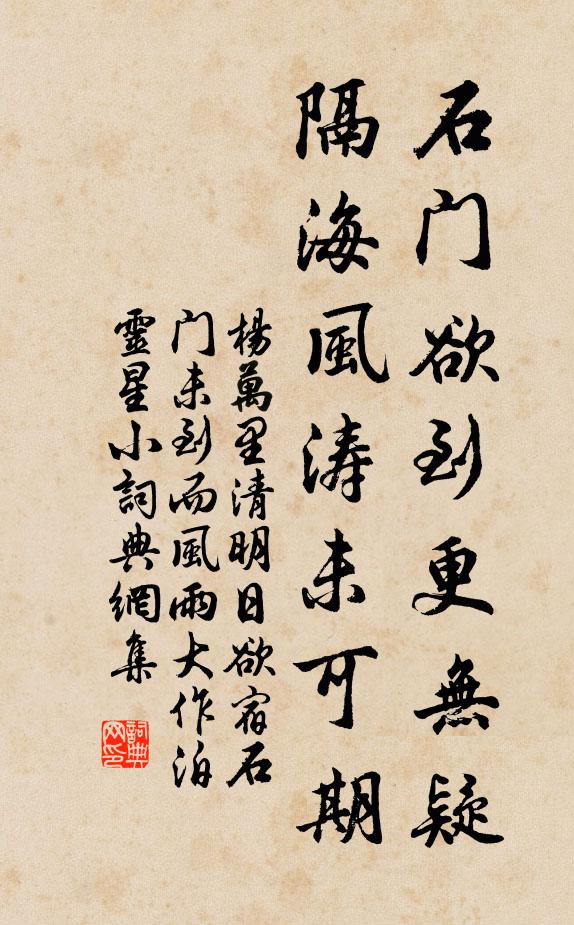 石门欲到更無疑
隔海風涛未可期
楊萬里清明日欲宿石
门未到而風雨大作泊
靈星小詞典網集
詞典
网印